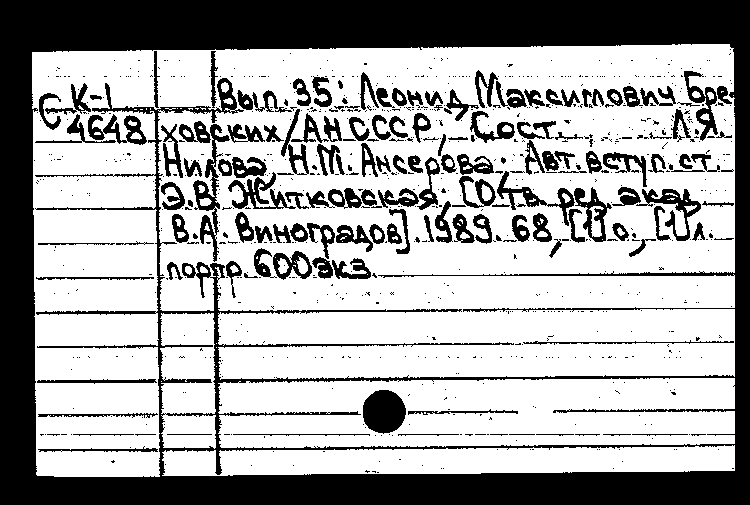 С К-1 Вып. 35: Леонид Максимович Бре-
4648 ховских/АН СССР; Сост. Л.Я.
Нилова, Н.М. Ансерова; Авт. вступ. ст.
Э.В. Житковская; [Отв. ред. акад.
В.А. Виноградов]. 1989. 68, [1] с., [1] л.
портр. 600 экз.